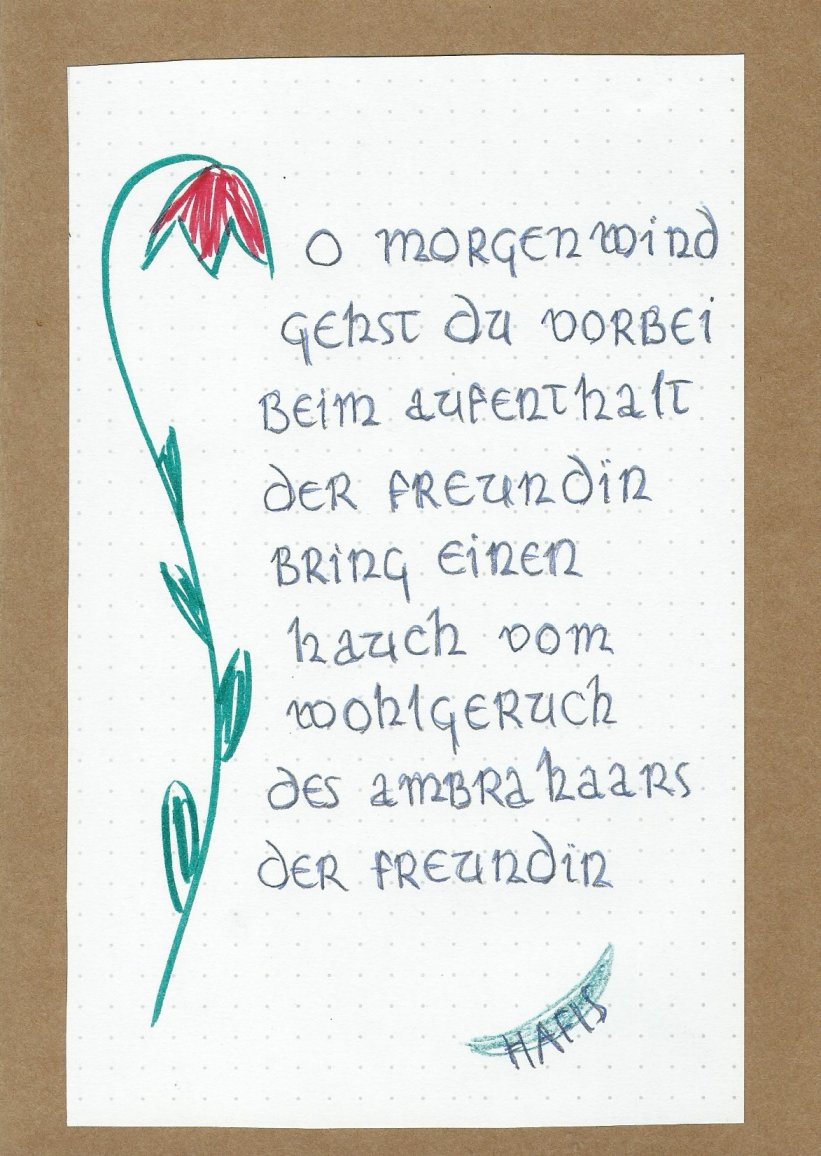 O MORGENWIND
GEHST DU VORBEI
BEIM AUFENTHALT
DER FREUNDIN
BRING EINEN
HAUCH VOM
WOHLGERUCH
DES AMBRAHAARS
DER FREUNDIN
HAFIS